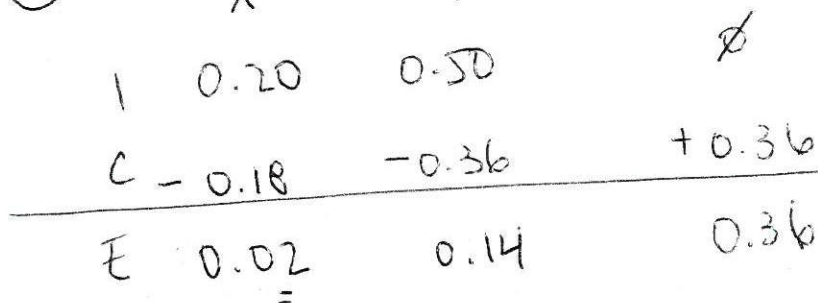 I 0.20 0.50 Ø
C - 0.18 -0.36 + 0.36
E 0.02 0.14 0.36